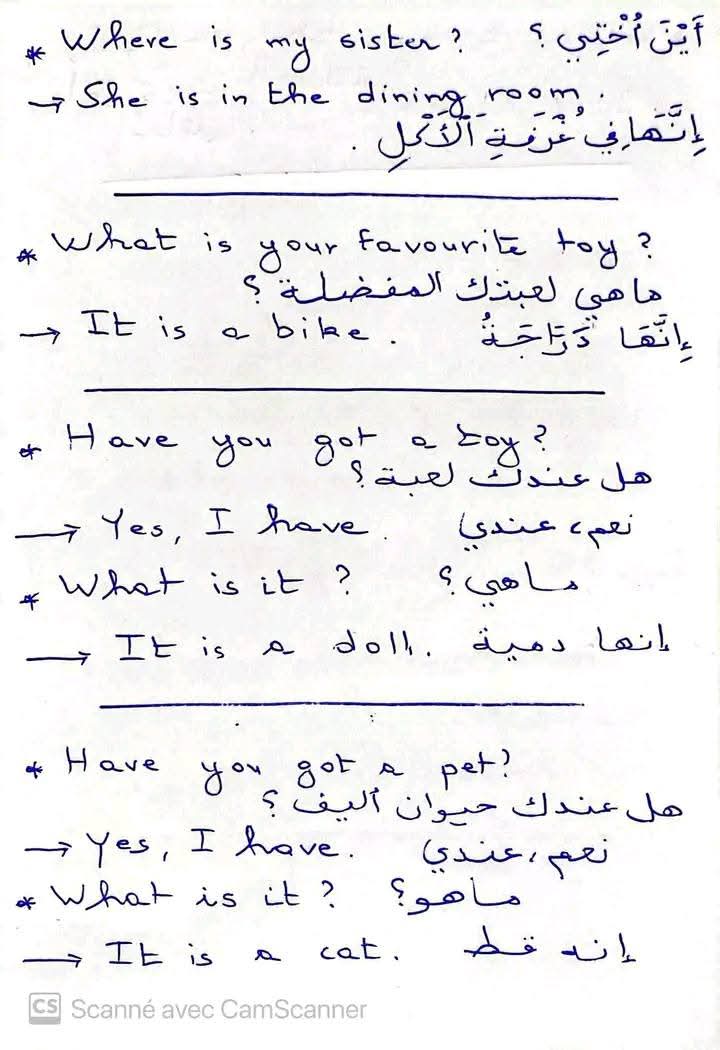 * Where is my sister? أَيْنَ أُخْتِي ؟
→ She is in the dining room.
إِنَّهَا فِي غُرْفَةِ اَلْأَكْلِ .
* What is your favourite toy?
ماهي لعبتك المفضلة ؟
→ It is a bike. إِنَّهَا دَرَّاجَةُ
* Have you got a toy?
هل عندك لعبة ؟
→ Yes, I have. نعم، عندي
* What is it ? ماهي ؟
→ It is a doll. إنها دمية
* Have you got a pet?
هل عندك حيوان أليف ؟
→ Yes, I have. نعم، عندي
* What is it ? ماهو ؟
→ It is a cat. إنه قط
CS Scanné avec CamScanner